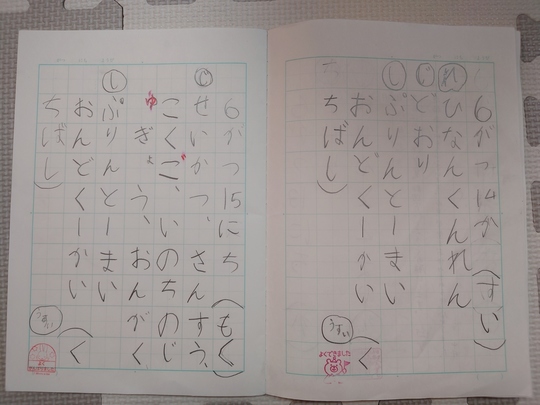 6がつ14か(すい)
れ ひなんくんれん
じ どおり
し ぷりんと一まい
おんどく一かい(く
ちばし)
うすい
よくできました
6がつ15にち(もく)
じ せいかつ、さんすう、
こくご、いのちのじ
ゅぎょう、おんがく
し ぷりんと一まい
おんどく一かい(く
ちばし)
うすい